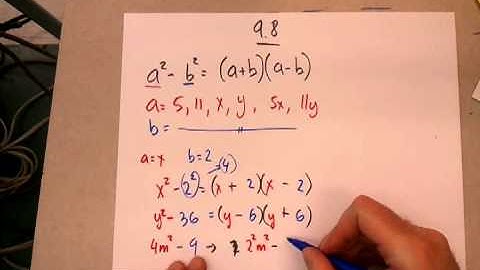 9.8
a² - b² = (a+b)(a-b)
a = 5, 11, x, y, 5x, 11y
b =
a=x b=2
(4)
x² - 2² = (x + 2)(x - 2)
y² - 36 = (y - 6)(y + 6)
4m² - 9 → 2²m² -